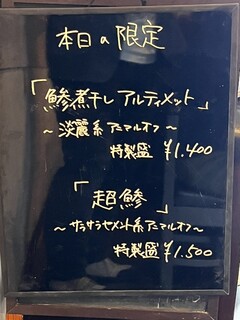 本日の限定
「鯵煮干し アルティメット」
～淡麗系アニマルオフ～
特製盛 ¥1.400
「超鯵」
～サラサラセメント系アニマルオフ～
特製盛 ¥1.500